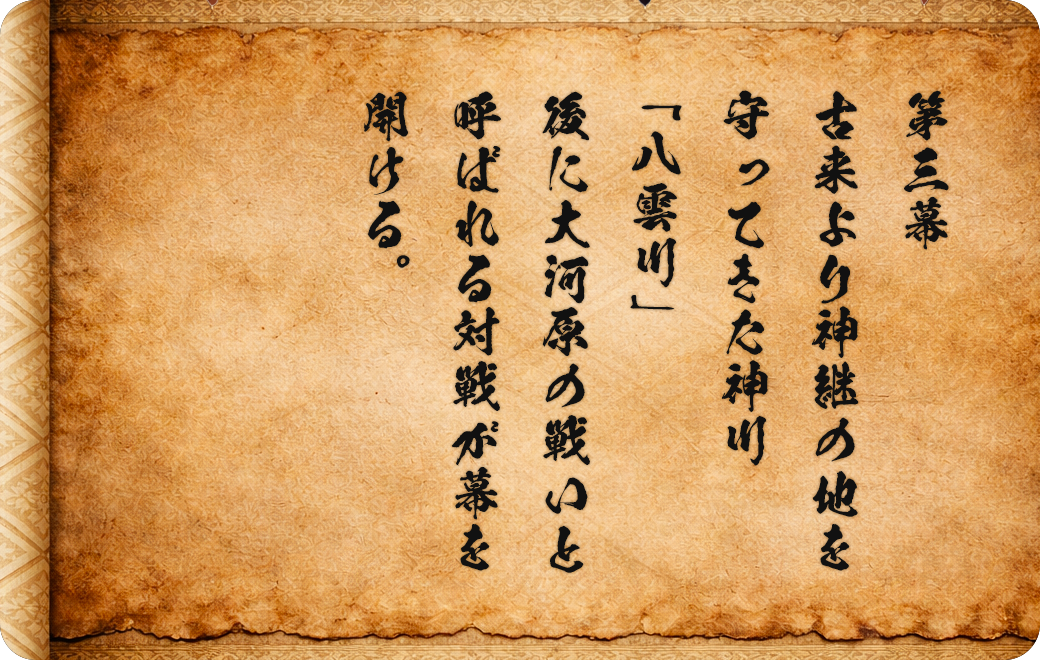 第三幕
古来より神継の地を
守ってきた神川
「八雲川」
後に大河原の戦いと
呼ばれる対戦が幕を
開ける。